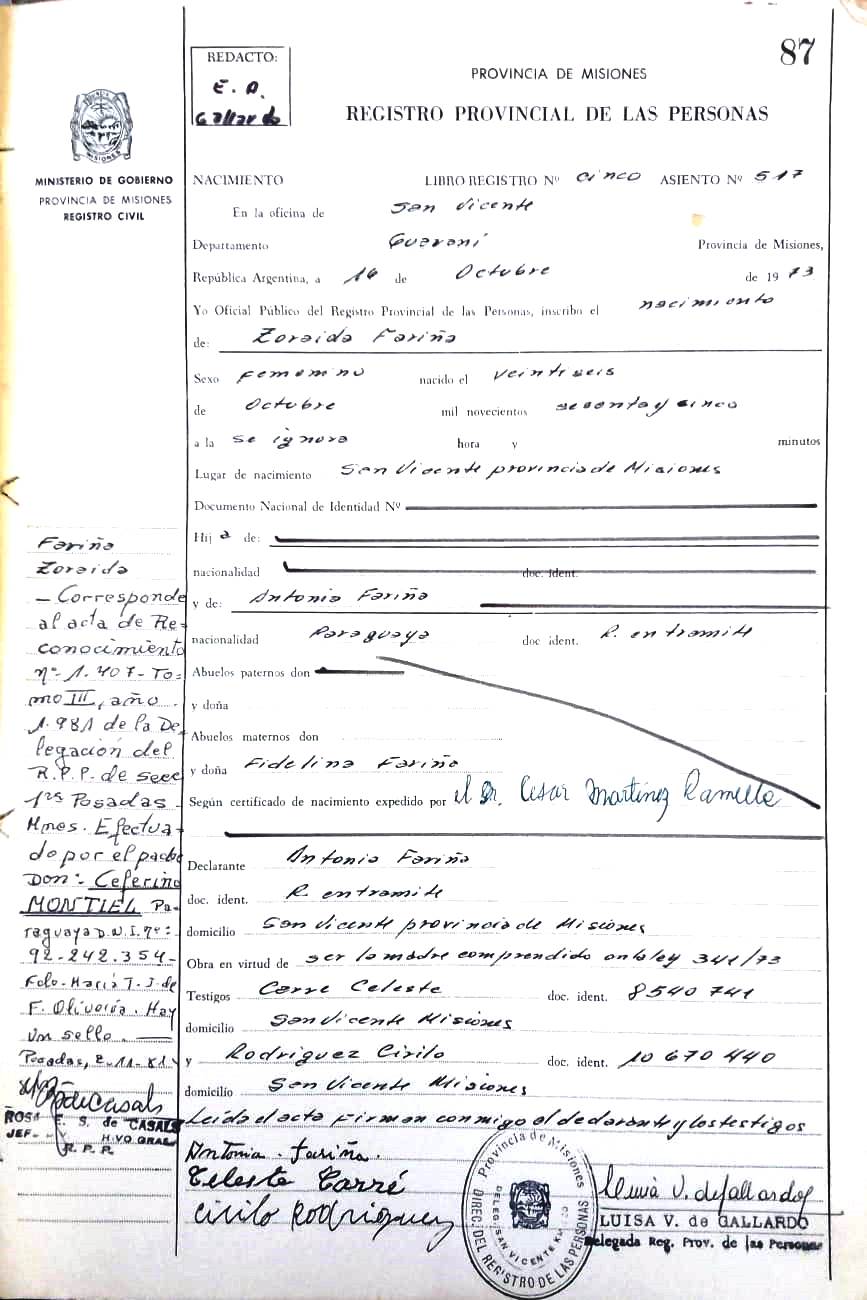 87
REDACTO:
E. A.
Gallardo
PROVINCIA DE MISIONES
REGISTRO PROVINCIAL DE LAS PERSONAS
MISIONES
MINISTERIO DE GOBIERNO
PROVINCIA DE MISIONES
REGISTRO CIVIL
NACIMIENTO LIBRO REGISTRO Nº cinco ASIENTO Nº 517
En la oficina de San Vicente
Departamento Guaraní Provincia de Misiones,
República Argentina, a 16 de Octubre de 1973
Yo Oficial Público del Registro Provincial de las Personas, inscribo el nacimiento
de: Zoraida Fariña
Sexo femenino nacido el veintiseis
de Octubre mil novecientos sesenta y cinco
a la se ignora hora y minutos
Lugar de nacimiento San Vicente provincia de Misiones
Documento Nacional de Identidad Nº
Hija de:
nacionalidad doc. ident.
y de: Antonia Fariña
nacionalidad Paraguaya doc ident. R. en tramite
Abuelos paternos don
y doña
Abuelos maternos don
y doña Fidelina Fariña
Según certificado de nacimiento expedido por el Dr. Cesar Martinez
Declarante Antonia Fariña
doc. ident. R. en tramite
domicilio San Vicente provincia de Misiones
Obra en virtud de ser la madre comprendido en la ley 341/73
Testigos Carre Celeste doc. ident. 8540741
domicilio San Vicente Misiones
y Rodriguez Cirilo doc. ident. 10670440
domicilio San Vicente Misiones
Leida el acta firman conmigo el declarante y los testigos
Antonia Fariña.
Celeste Carré
Cirilo Rodriguez
Provincia de Misiones
DIREC. DEL REGISTRO DE LAS PERSONAS
DELEG. SAN VICENTE
LUISA V. de GALLARDO
Delegada Reg. Prov. de las Personas
Fariña
Zoraida
— Corresponde
al acta de Re-
conocimiento
nº 1.407-To-
mo III, año
1.981 de la De
legación del
R.P.P. de secc
1ra Posadas
Mnes. Efectua-
do por el padre
Don: Ceferino
MONTIEL Pa-
raguaya D.N.I. nº:
92-242.354-
Fdo. María T. J. de
F. Oliveira. Hay
un sello.
Posadas, 2-11-81
ROSA E. S. de CASALS
JEF- HIVO GRAL
R. P. P.